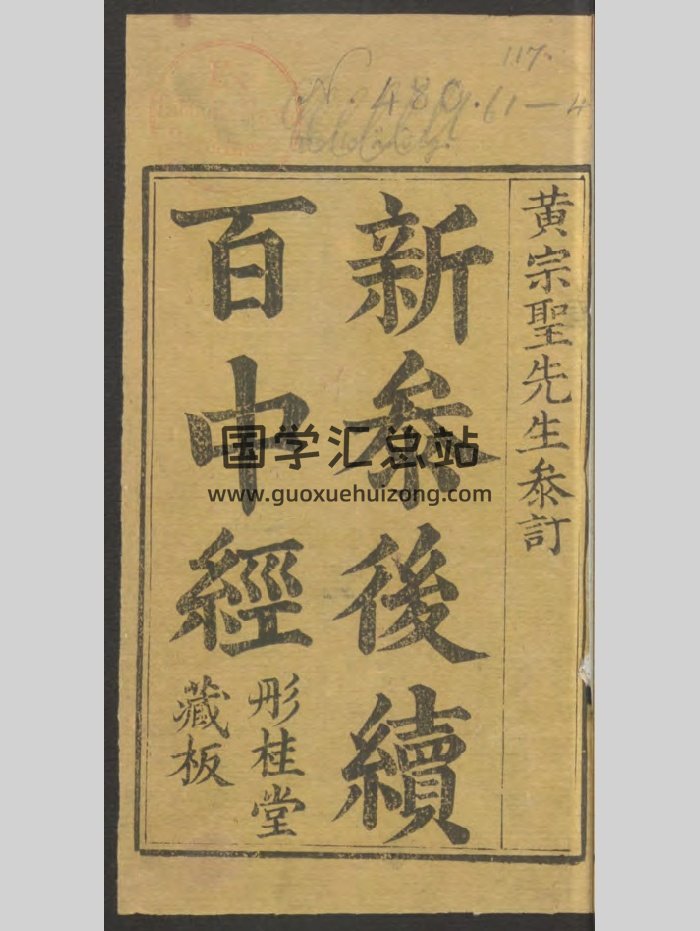 117.
N. 480. 61-4
黄宗聖先生叅訂
新叅後續
百中經
彤桂堂
藏板
国学汇总站
www.guoxuehuizong.com